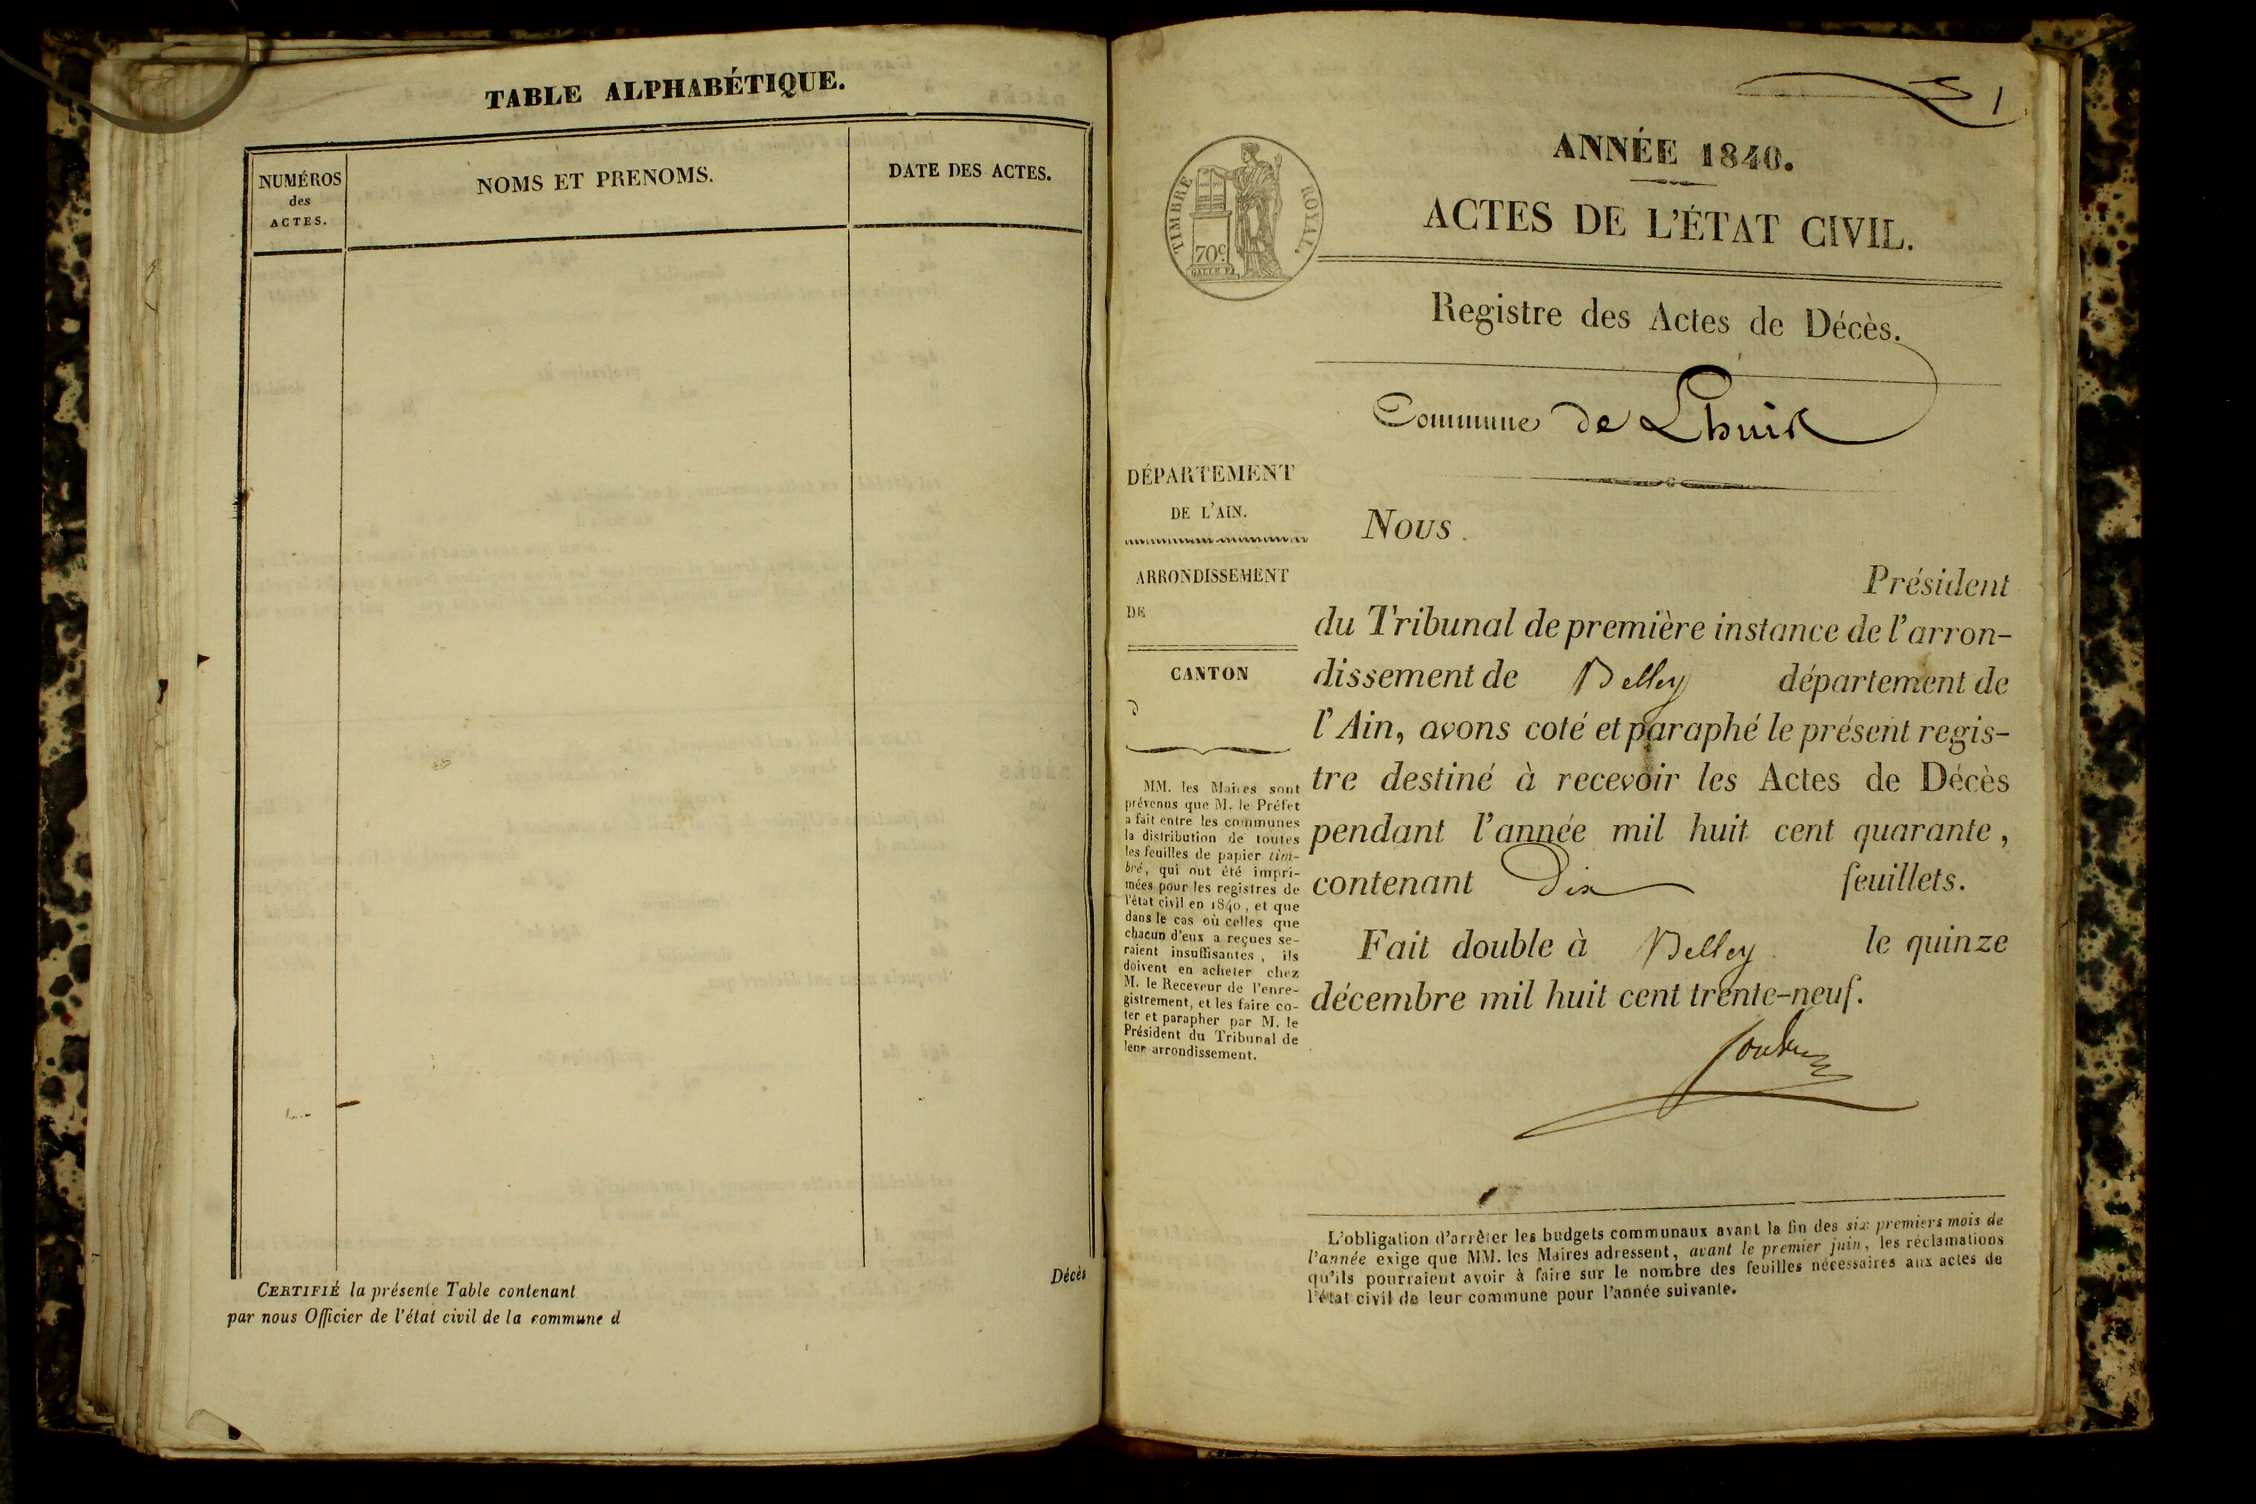 TABLE ALPHABÉTIQUE.
NUMÉROS
des
ACTES.
NOMS ET PRENOMS.
DATE DES ACTES.
CERTIFIÉ la présente Table contenant
Décès
par nous Officier de l'état civil de la commune d
1
TIMBRE ROYAL.
70c
ANNÉE 1840.
ACTES DE L'ÉTAT CIVIL.
Registre des Actes de Décès.
Commune de Lhuis
DÉPARTEMENT
DE L'AIN.
ARRONDISSEMENT
DE
CANTON
MM. les Maires sont
prévenus que M. le Préfet
a fait entre les communes
la distribution de toutes
les feuilles de papier tim-
bré, qui ont été impri-
mées pour les registres de
l'état civil en 1840, et que
dans le cas où celles que
chacun d'eux a reçues se-
raient insuffisantes, ils
doivent en acheter chez
M. le Receveur de l'enre-
gistrement, et les faire co-
ter et parapher par M. le
Président du Tribunal de
leur arrondissement.
Nous
Président
du Tribunal de première instance de l'arron-
dissement de Belley département de
l'Ain, avons coté et paraphé le présent regis-
tre destiné à recevoir les Actes de Décès
pendant l'année mil huit cent quarante,
contenant Dix feuillets.
Fait double à Belley le quinze
décembre mil huit cent trente-neuf.
L'obligation d'arrêter les budgets communaux avant la fin des six premiers mois de
l'année exige que MM. les Maires adressent, avant le premier juin, les réclamations
qu'ils pourraient avoir à faire sur le nombre des feuilles nécessaires aux actes de
l'état civil de leur commune pour l'année suivante.